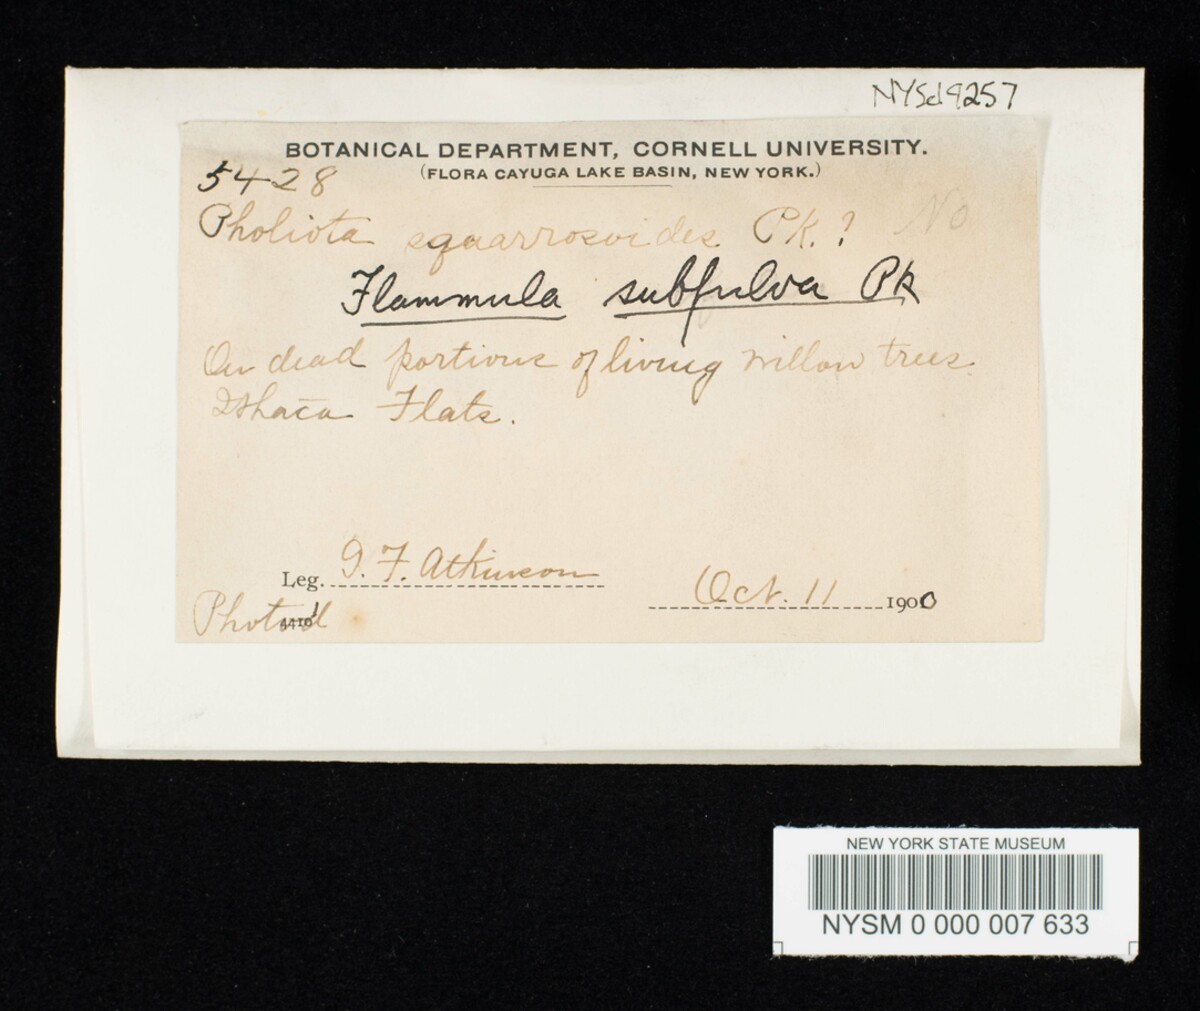 NYSd9257
BOTANICAL DEPARTMENT, CORNELL UNIVERSITY.
(FLORA CAYUGA LAKE BASIN, NEW YORK.)
5428
Pholiota squarrosoides Pk.? No
Flammula subfulva Pk
On dead portions of living willow trees.
Ithaca Flats.
Leg. G. F. Atkinson
Oct. 11 1900
Photo'd
NEW YORK STATE MUSEUM
NYSM 0 000 007 633